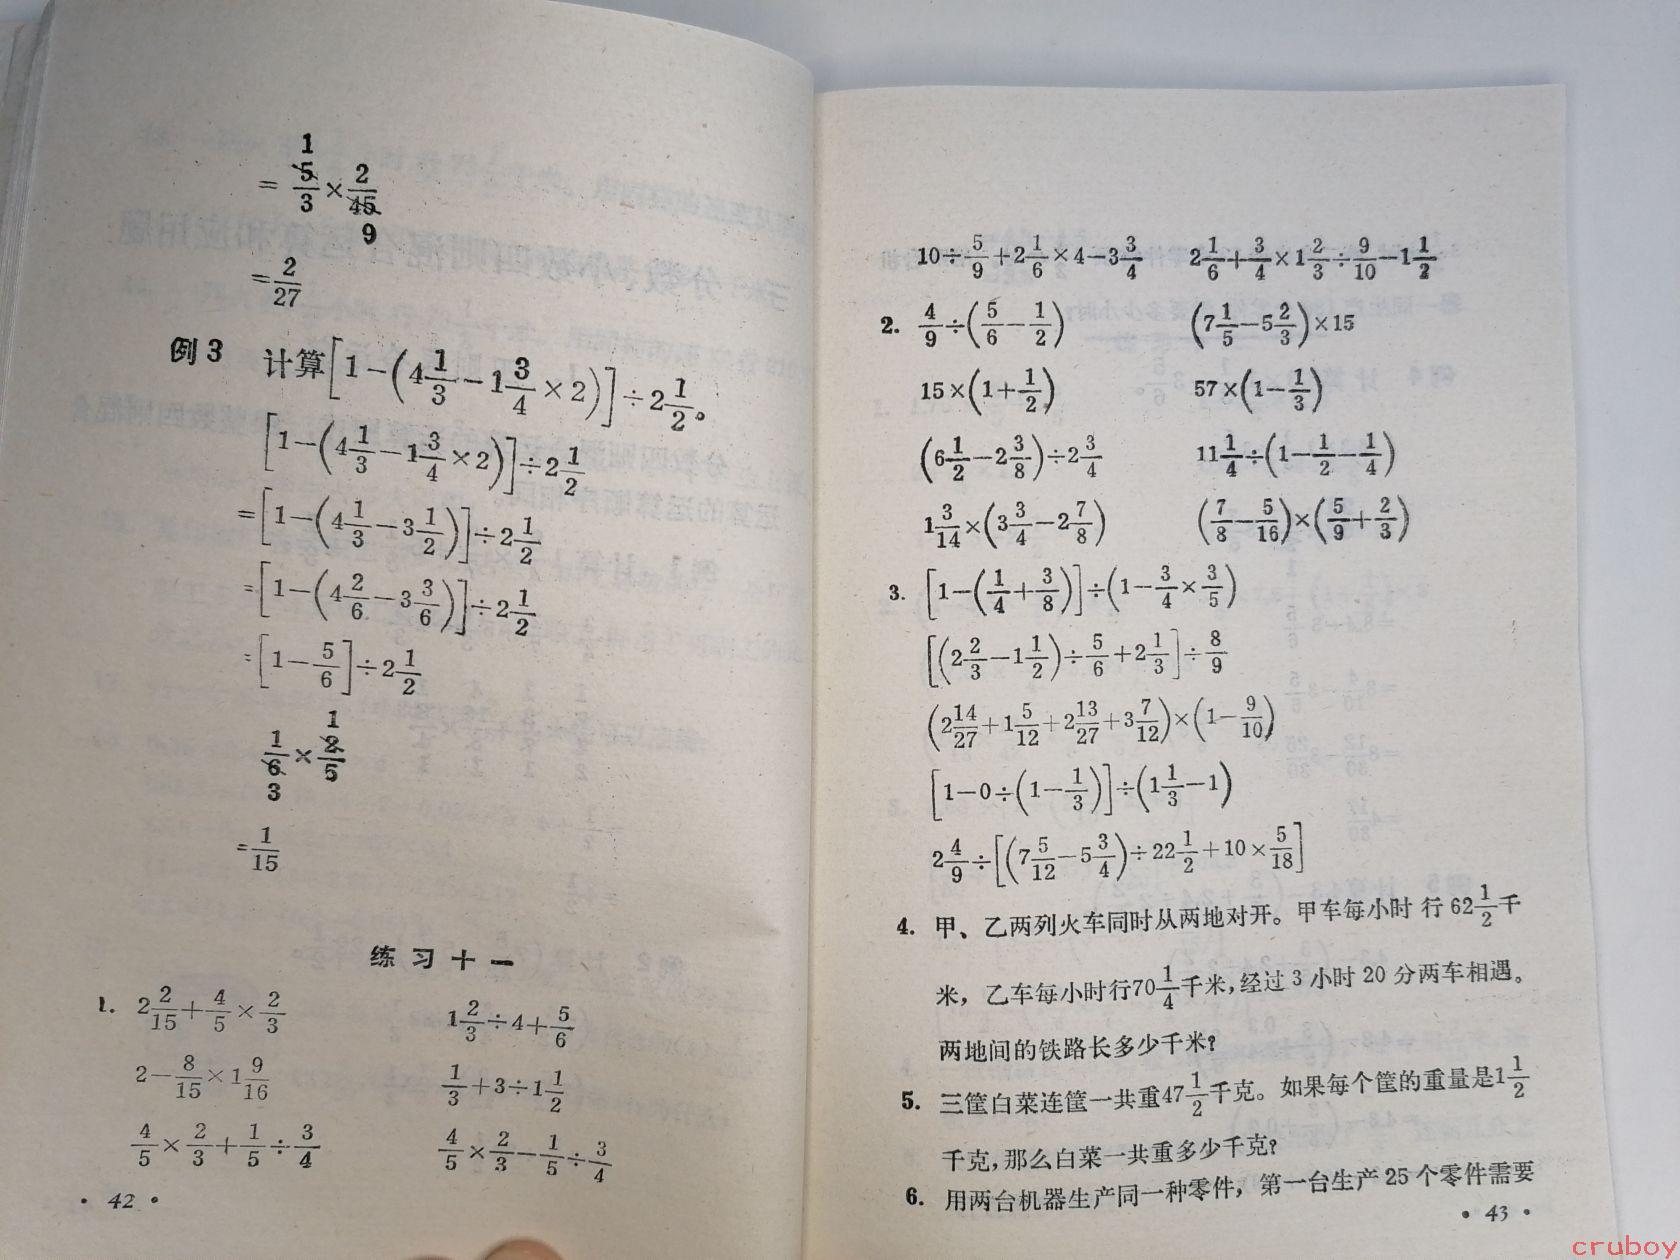 1
= 5/3 × 2/45
9
= 2/27
例3 计算[1-(4 1/3-1 3/4×2)]÷2 1/2。
[1-(4 1/3-1 3/4×2)]÷2 1/2
=[1-(4 1/3-3 1/2)]÷2 1/2
=[1-(4 2/6-3 3/6)]÷2 1/2
=[1-5/6]÷2 1/2
1
1/6 × 2/5
3
= 1/15
练习十一
1. 2 2/15+4/5×2/3 1 2/3÷4+5/6
2-8/15×1 9/16 1/3+3÷1 1/2
4/5×2/3+1/5÷3/4 4/5×2/3-1/5÷3/4
• 42 •
10÷5/9+2 1/6×4-3 3/4 2 1/6+3/4×1 2/3÷9/10-1 1/2
2. 4/9÷(5/6-1/2) (7 1/5-5 2/3)×15
15×(1+1/2) 57×(1-1/3)
(6 1/2-2 3/8)÷2 3/4 11 1/4÷(1-1/2-1/4)
1 3/14×(3 3/4-2 7/8) (7/8-5/16)×(5/9+2/3)
3. [1-(1/4+3/8)]÷(1-3/4×3/5)
[(2 2/3-1 1/2)÷5/6+2 1/3]÷8/9
(2 14/27+1 5/12+2 13/27+3 7/12)×(1-9/10)
[1-0÷(1-1/3)]÷(1 1/3-1)
2 4/9÷[(7 5/12-5 3/4)÷22 1/2+10×5/18]
4. 甲、乙两列火车同时从两地对开。甲车每小时行62 1/2千
米，乙车每小时行70 1/4千米，经过3小时20分两车相遇。
两地间的铁路长多少千米？
5. 三筐白菜连筐一共重47 1/2千克。如果每个筐的重量是1 1/2
千克，那么白菜一共重多少千克？
6. 用两台机器生产同一种零件，第一台生产25个零件需要
• 43 •
cruboy